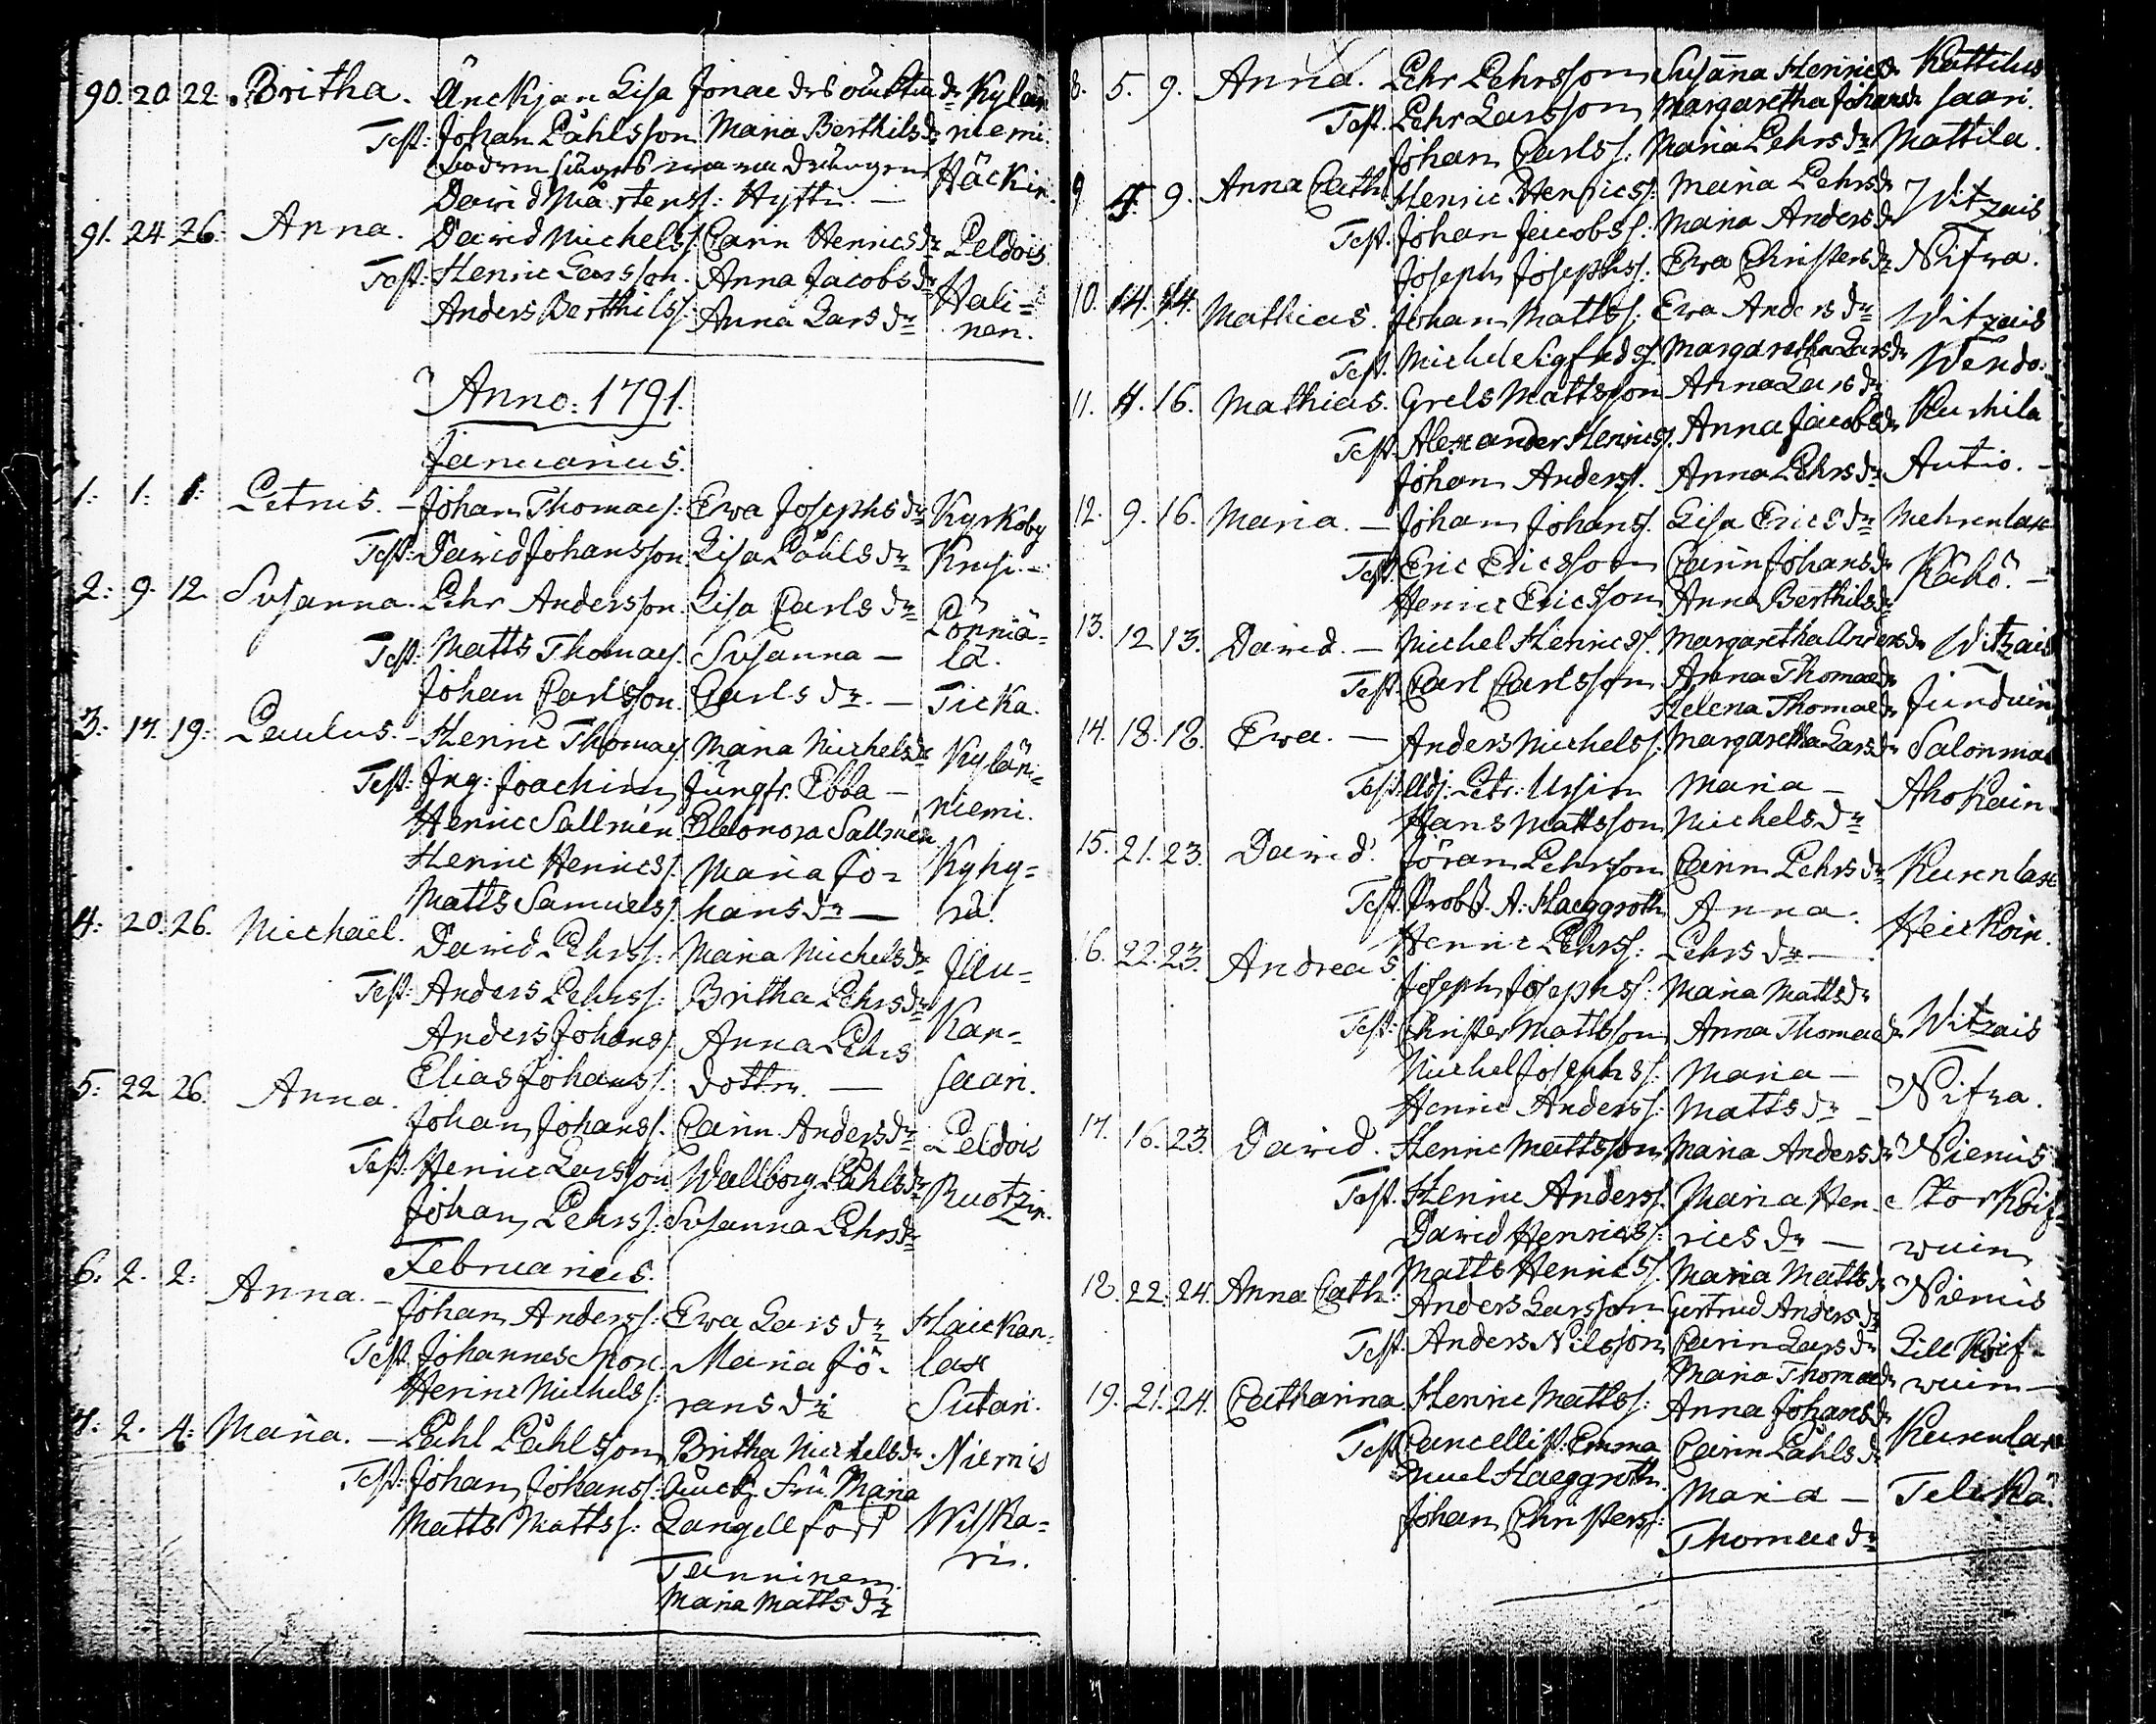 90. 20. 22. Britha. Änckjan Lisa Jonae dr Kylän
Test: Johan Påhlsson Maria Berthilsdr niemi.
David Mårtenss: Hyttin. — Häckin.
91. 24. 26. Anna. David Michelss. Carin Henricsdr Peldois
Test: Henric Larsson. Anna Jacobsdr Hali=
Anders Berthilss: Anna Larsdr nen.
Anno: 1791.
Januarius.
1: 1: 1: Petrus. — Johan Thomaes: Ewa Josephsdr Kyrkoby
Test: David Johansson Lisa Påhlsdr Krusi —
2: 9. 12. Susanna. Pehr Andersson. Lisa Carlsdr Pönniä=
Test: Matts Thomaes. Susanna — lä.
Johan Carlsson. Carlsdr. — Ticka.
3: 17. 19: Paulus. — Henric Thomaes. Maria Michelsdr Kylän=
Test: Ing: Joachim Jungfr. Ebba — niemi.
Henric Sallmén Eleonora Sallmén
Henric Henricss. Maria Jo= Kyhy=
Matts Samuelss. hansdr — rä.
4: 20. 26. Michaël. David Pehrss: Maria Michelsdr Illu=
Test: Anders Pehrss: Britha Pehrsdr Kan=
Anders Johanss. Anna Pehrs saari.
Elias Johanss. dotter. —
5: 22 26. Anna. Johan Johanss. Carin Andersdr Peldois
Test: Henric Larsson Wallborg Påhlsdr Ruotzin.
Johan Pehrss: Susanna Pehrsdr
Februarius.
6: 2. 2: Anna. — Johan Anderss: Ewa Larsdr Haickan=
Test. Johannes Snon. Maria Jö= lax
Henric Michelss: ransdr Sutari.
7. 2. 4: Maria. — Påhl Påhlsson Britha Michelsdr Niemis
Test: Johan Johanss: Fru Maria
Matts Mattss: Langellfort Wilska=
Tanninen ri.
Maria Mattsdr
8. 5. 9. Anna. Pehr Pehrsson Susanna Henricsdr Kattilus
Test. Pehr Larsson Margaretha Johansdr saari.
Johan Carlss: Maria Pehrsdr Mattila.
9 4. 9. Anna Cath: Henric Henricss: Maria Pehrsdr Witzais
Test. Johan Jacobss: Maria Andersdr
Joseph Josephss: Ewa Christersdr Nifwa.
10. 14. 14. Mathias. Johan Mattss: Ewa Andersdr Witzais
Test. Michel Sigfridss. Margaretha Larsdr Wendo.
11. 11. 16. Mathias. Grels Mattsson Anna Larsdr
Test. Alexander Henricss. Anna Jacobsdr
Johan Anderss. Anna Pehrsdr Autio. —
12. 9. 16. Maria. — Johan Johanss. Lisa Ericsdr Mehrenlax
Test. Eric Ericsson Carin Johansdr Kähö. —
Henric Ericsson Anna Berthilsdr
13. 12 13. David. — Michel Henricss. Margaretha Andersdr Witzais
Test. Carl Carlsson Anna Thomaedr
Helena Thomaedr
14. 18. 18. Ewa. — Anders Michelss. Margaretha Larsdr Salonmaa
Test. Adj. Petr: Ursin Maria — Ahokain
Hans Mattsson Michelsdr
15. 21. 23. David. Jöran Pehrsson Carin Pehrsdr Kurenlax
Test. Probst. A: Haeggroth Anna. Heickoin.
Henric Pehrss: Pehrsdr —
16. 22. 23. Andreas. Joseph Josephss: Maria Mattsdr
Test: Christer Mattsson Anna Thomaedr Witzais
Michel Josephss: Maria —
Henric Anderss: Mattsdr — Nifwa.
17. 16. 23. David. Henric Mattsson Maria Andersdr Niemis
Test. Henric Anderss. Maria Hen= Storkoif=
David Henricss: ricsdr — wuin
Matts Henricss. Maria Mattsdr
18. 22. 24. Anna Cath: Anders Larsson Gertrud Andersdr Niemis
Test. Anders Nilsson Carin Larsdr Lill Koif=
Maria Thomaedr wuin —
19. 21. 24. Catharina. Henric Mattss: Anna Johansdr Kurenlax
Test. Cancellist. Emma Carin Påhlsdr
nuel Haeggroth. Maria — Telikä.
Johan Christerss: Thomaedr